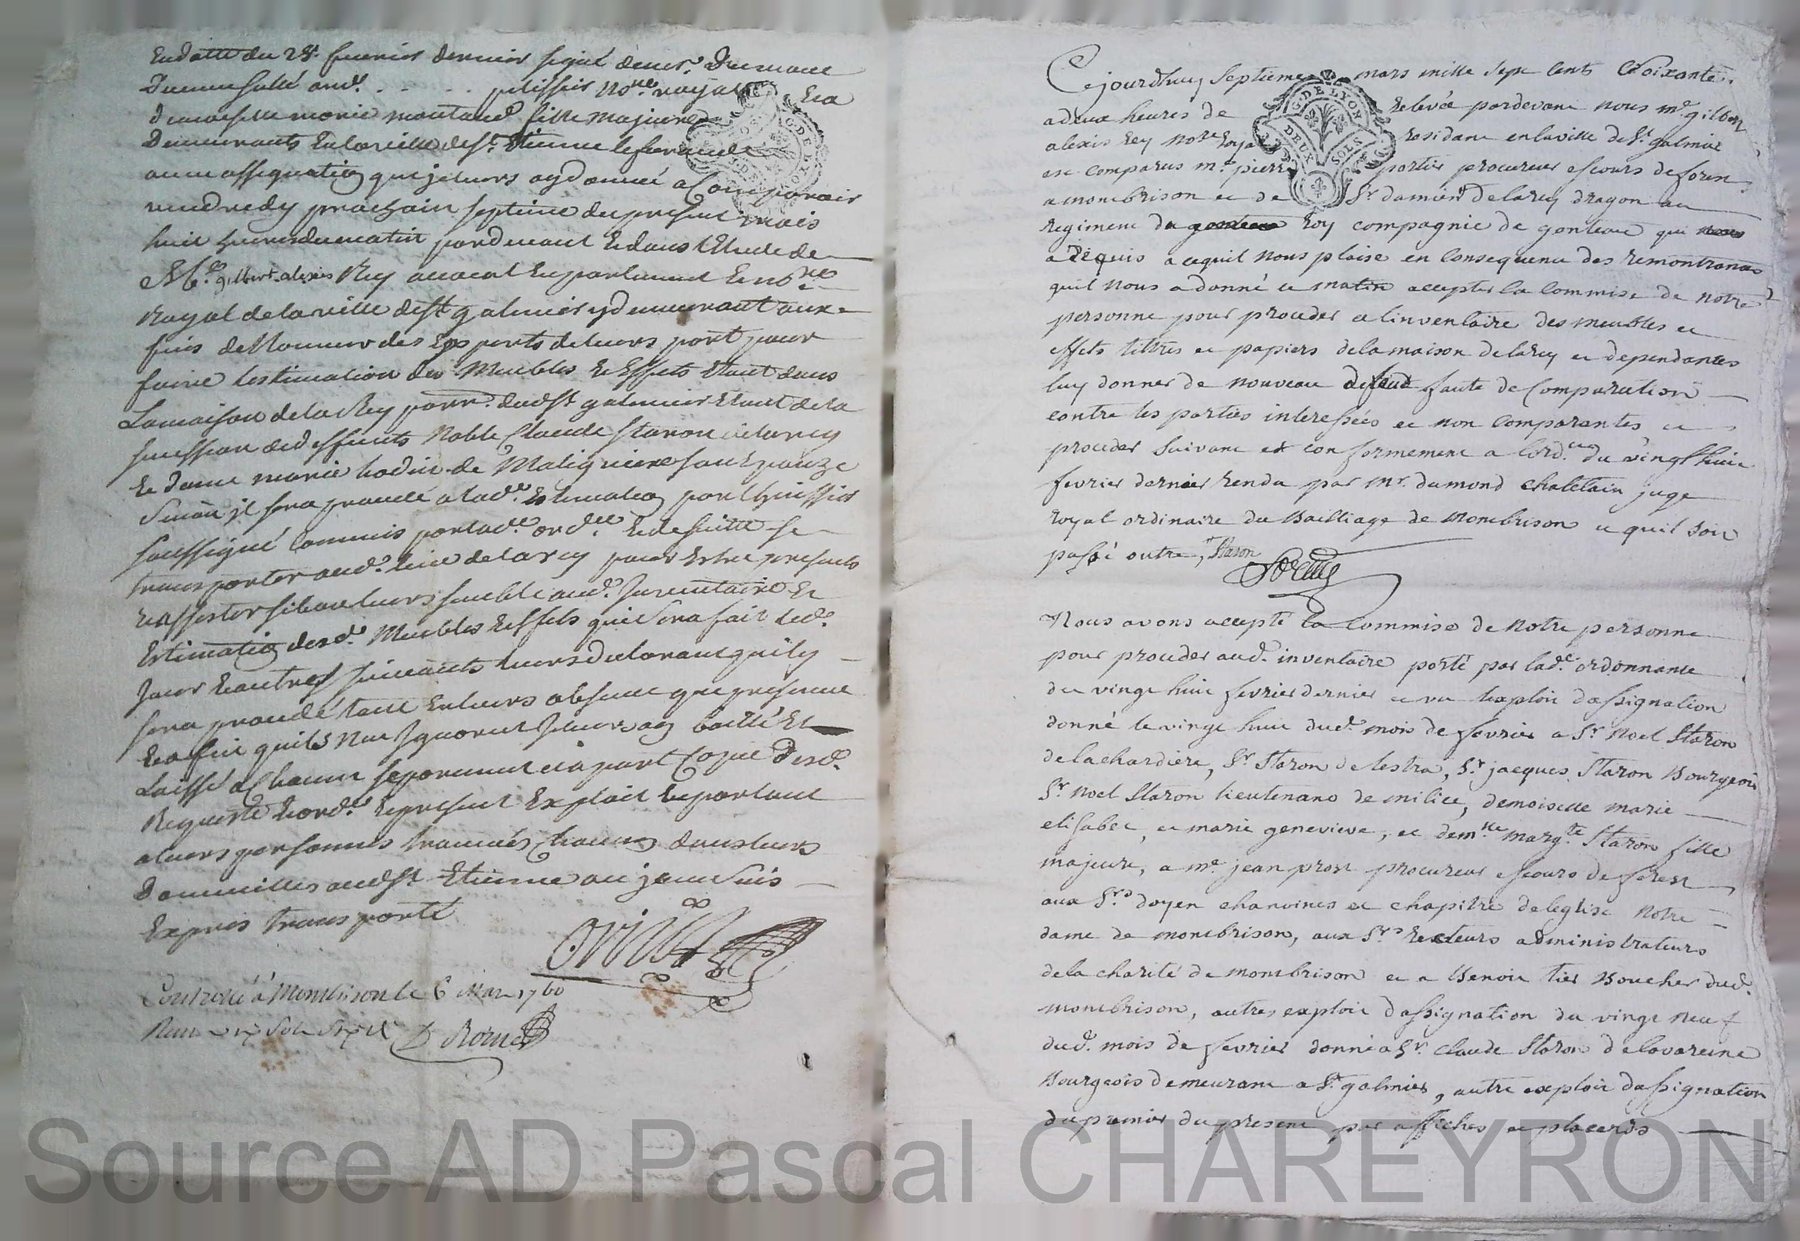 En datte du 28e feuvrier dernier signé de mr. Dumont
Duement sellé aud.
demoiselle marie montaud fille majeure
Demeurants En la ville de st. Etienne
aune assignation que je leurs ay donnée a Comparoir
vendredy prochain septieme du present mois
huit heures du matin pardevant Et dans l'Etude de
Me. gilbert alexis Rey avocat En parlement Et nore
Royal de la ville de st galmier y demeurant aux
fins de nommer des Experts de leurs part pour
faire l'estimation des Meubles Et Effets Etant dans
La maison de larcy parr. dud st galmier Etant de la
succession de deffunts Noble Claude Staron de larcy
Et dame marie
Sinon il sera procedé a lad.e Estimation par l'huissier
soussigné Commis par lad.e ord.ce Et de suitte se
transporter aud. lieu de larcy pour Estre presents
Et assister si bon leurs semble aud. Inventaire Et
Estimation desd. Meubles Et Effets qui sera fait led.
Jour Et autres suivants leurs declarant quil y
sera procedé tant En leurs absence que presence
Et a fin quils Nen Ignorent Je leurs ay baillé Et
Laissé a Chacun separement Et a part Copie desd.
Requeste Et ord.ce Et present Exploit En parlant
a leurs personnes trouvés Chacun dans leurs
Domicilles aud st. Etienne ou je me suis
Expres transporté
Controlé a Montbrison le 6 Mars 1760
D Rome
Cejourdhuy septieme mars mille sept cents soixante
a deux heures de relevée pardevant nous me. gilbert
alexis Rey nore royal residant en la ville de st. galmier
est comparus me. pierre portier procureur es cours de forest
a montbrison et de sr. damien delarcy dragon au
regiment du Roy compagnie de gonteau qui
a requis a ce quil nous plaise en consequence des remontrances
quil nous a donné ce matin accepter la commise de notre
personne pour proceder a linventaire des meubles et
effets tiltres et papiers de la maison de larcy et dependantes
luy donner de nouveau defaut faute de comparution
contre les parties interessées et non comparantes et
proceder suivant et conformement a lord.ce du vingt huit
fevrier dernier rendu par mr. dumond chatelain juge
royal ordinaire du Bailliage de Montbrison et quil soit
passé outre, Staron
Nous avons accepté la commise de notre personne
pour proceder aud. inventaire porté par lad.e ordonnance
du vingt huit fevrier dernier et vu lexploit dassignation
donné le vingt huit dud. mois de fevrier a sr. Noel Staron
de lachardiere, sr. Staron de lestra, sr. jacques Staron Bourgeois
sr. Noel Staron lieutenant de milice, demoiselle marie
elisabet, et marie genevieve, et dem.lle marg.te Staron fille
majeure, a me. jean prost procureur es cours de forest
aux srs. doyen chanoines et chapitre de leglise Notre
dame de montbrison, aux srs. recteurs administrateurs
de la charité de montbrison et a Benoit tier Boucher dud.
montbrison, autres exploit dassignation du vingt neuf
dud. mois de fevrier donné a sr. claude Staron de lavareine
Bourgeois demeurant a st. galmier, autre exploit dassignation
du premier du present par affiches et placards
G. DE LYON
DEUX SOLS
Source AD Pascal CHAREYRON